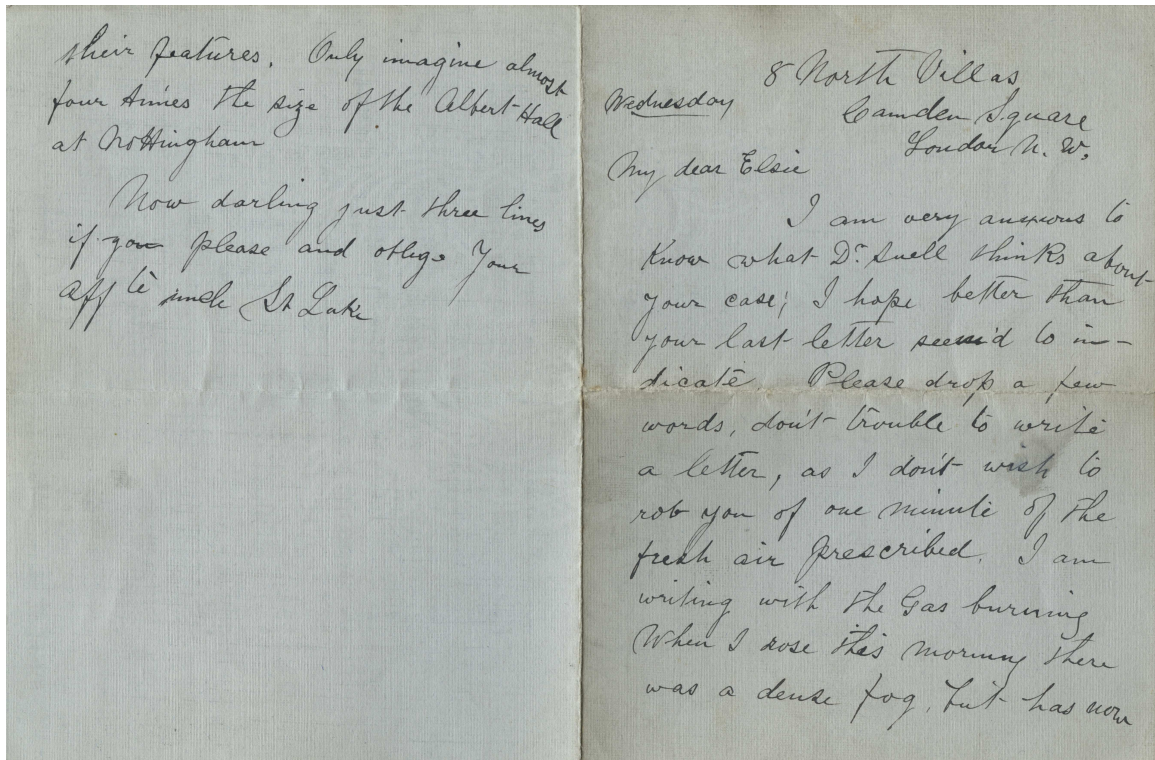 their features. Only imagine almost
four times the size of the Albert Hall
at Nottingham
Now darling just three lines
if you please and oblige Your
aff te uncle St Luke
8 North Villas
Wednesday Camden Square
London N. W.
My dear Elsie
I am very anxious to
know what Dr. Snell thinks about
your case; I hope better than
your last letter seem'd to in-
dicate. Please drop a few
words, don't trouble to write
a letter, as I don't wish to
rob you of one minute of the
fresh air prescribed. I am
writing with the Gas burning
When I rose this morning there
was a dense fog, but has now